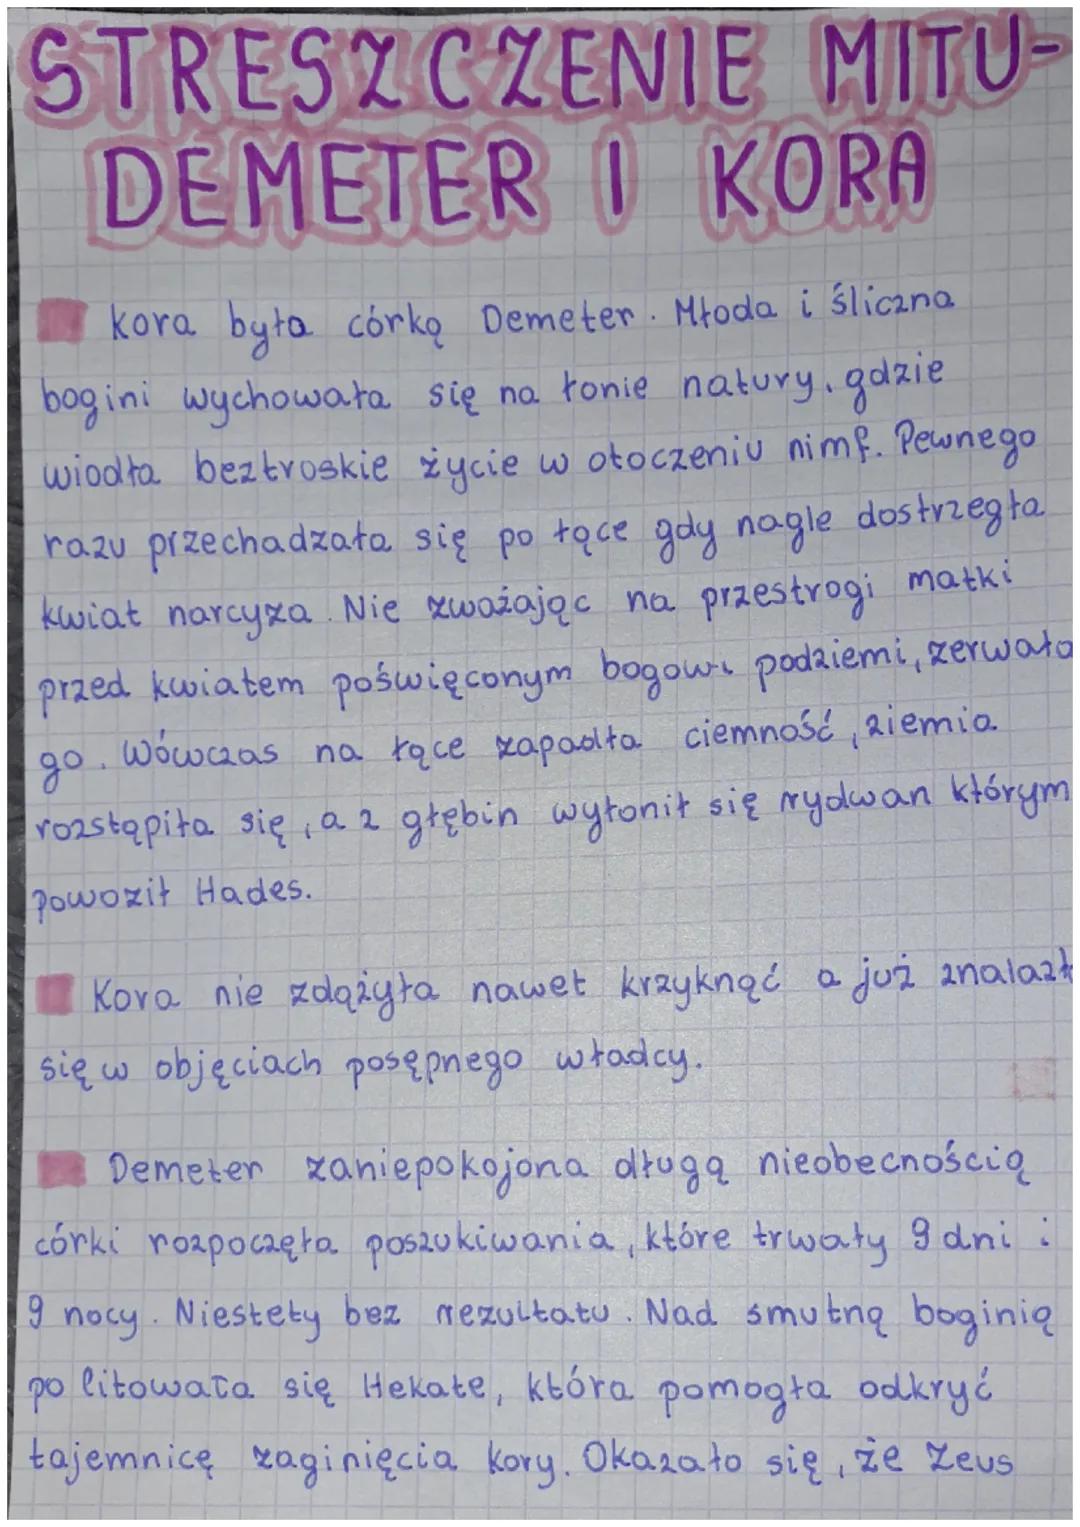 STRESZCZENIE MITU-
DEMETER I KORA
Kora była córką Demeter. Młoda i śliczna
bogini wychowała się na łonie natury, gdzie
wiodła beztroskie życie w otoczeniu nimf. Pewnego
razu przechadzała się po łące gdy nagle dostrzegła
kwiat narcyza. Nie zważając na przestrogi matki
przed kwiatem poświęconym bogowi podziemi, zerwała
go. Wówczas na łące zapadła ciemność, ziemia
rozstąpiła się, a z głębin wyłonił się rydwan którym
powoził Hades.
Kora nie zdążyła nawet krzyknąć a już znalazł
się w objęciach posępnego władcy.
Demeter zaniepokojona długą nieobecnością
córki rozpoczęła poszukiwania, które trwały 9 dni i
9 nocy. Niestety bez rezultatu. Nad smutną boginią
politowała się Hekate, która pomogła odkryć
tajemnicę zaginięcia Kory. Okazało się, że Zeus